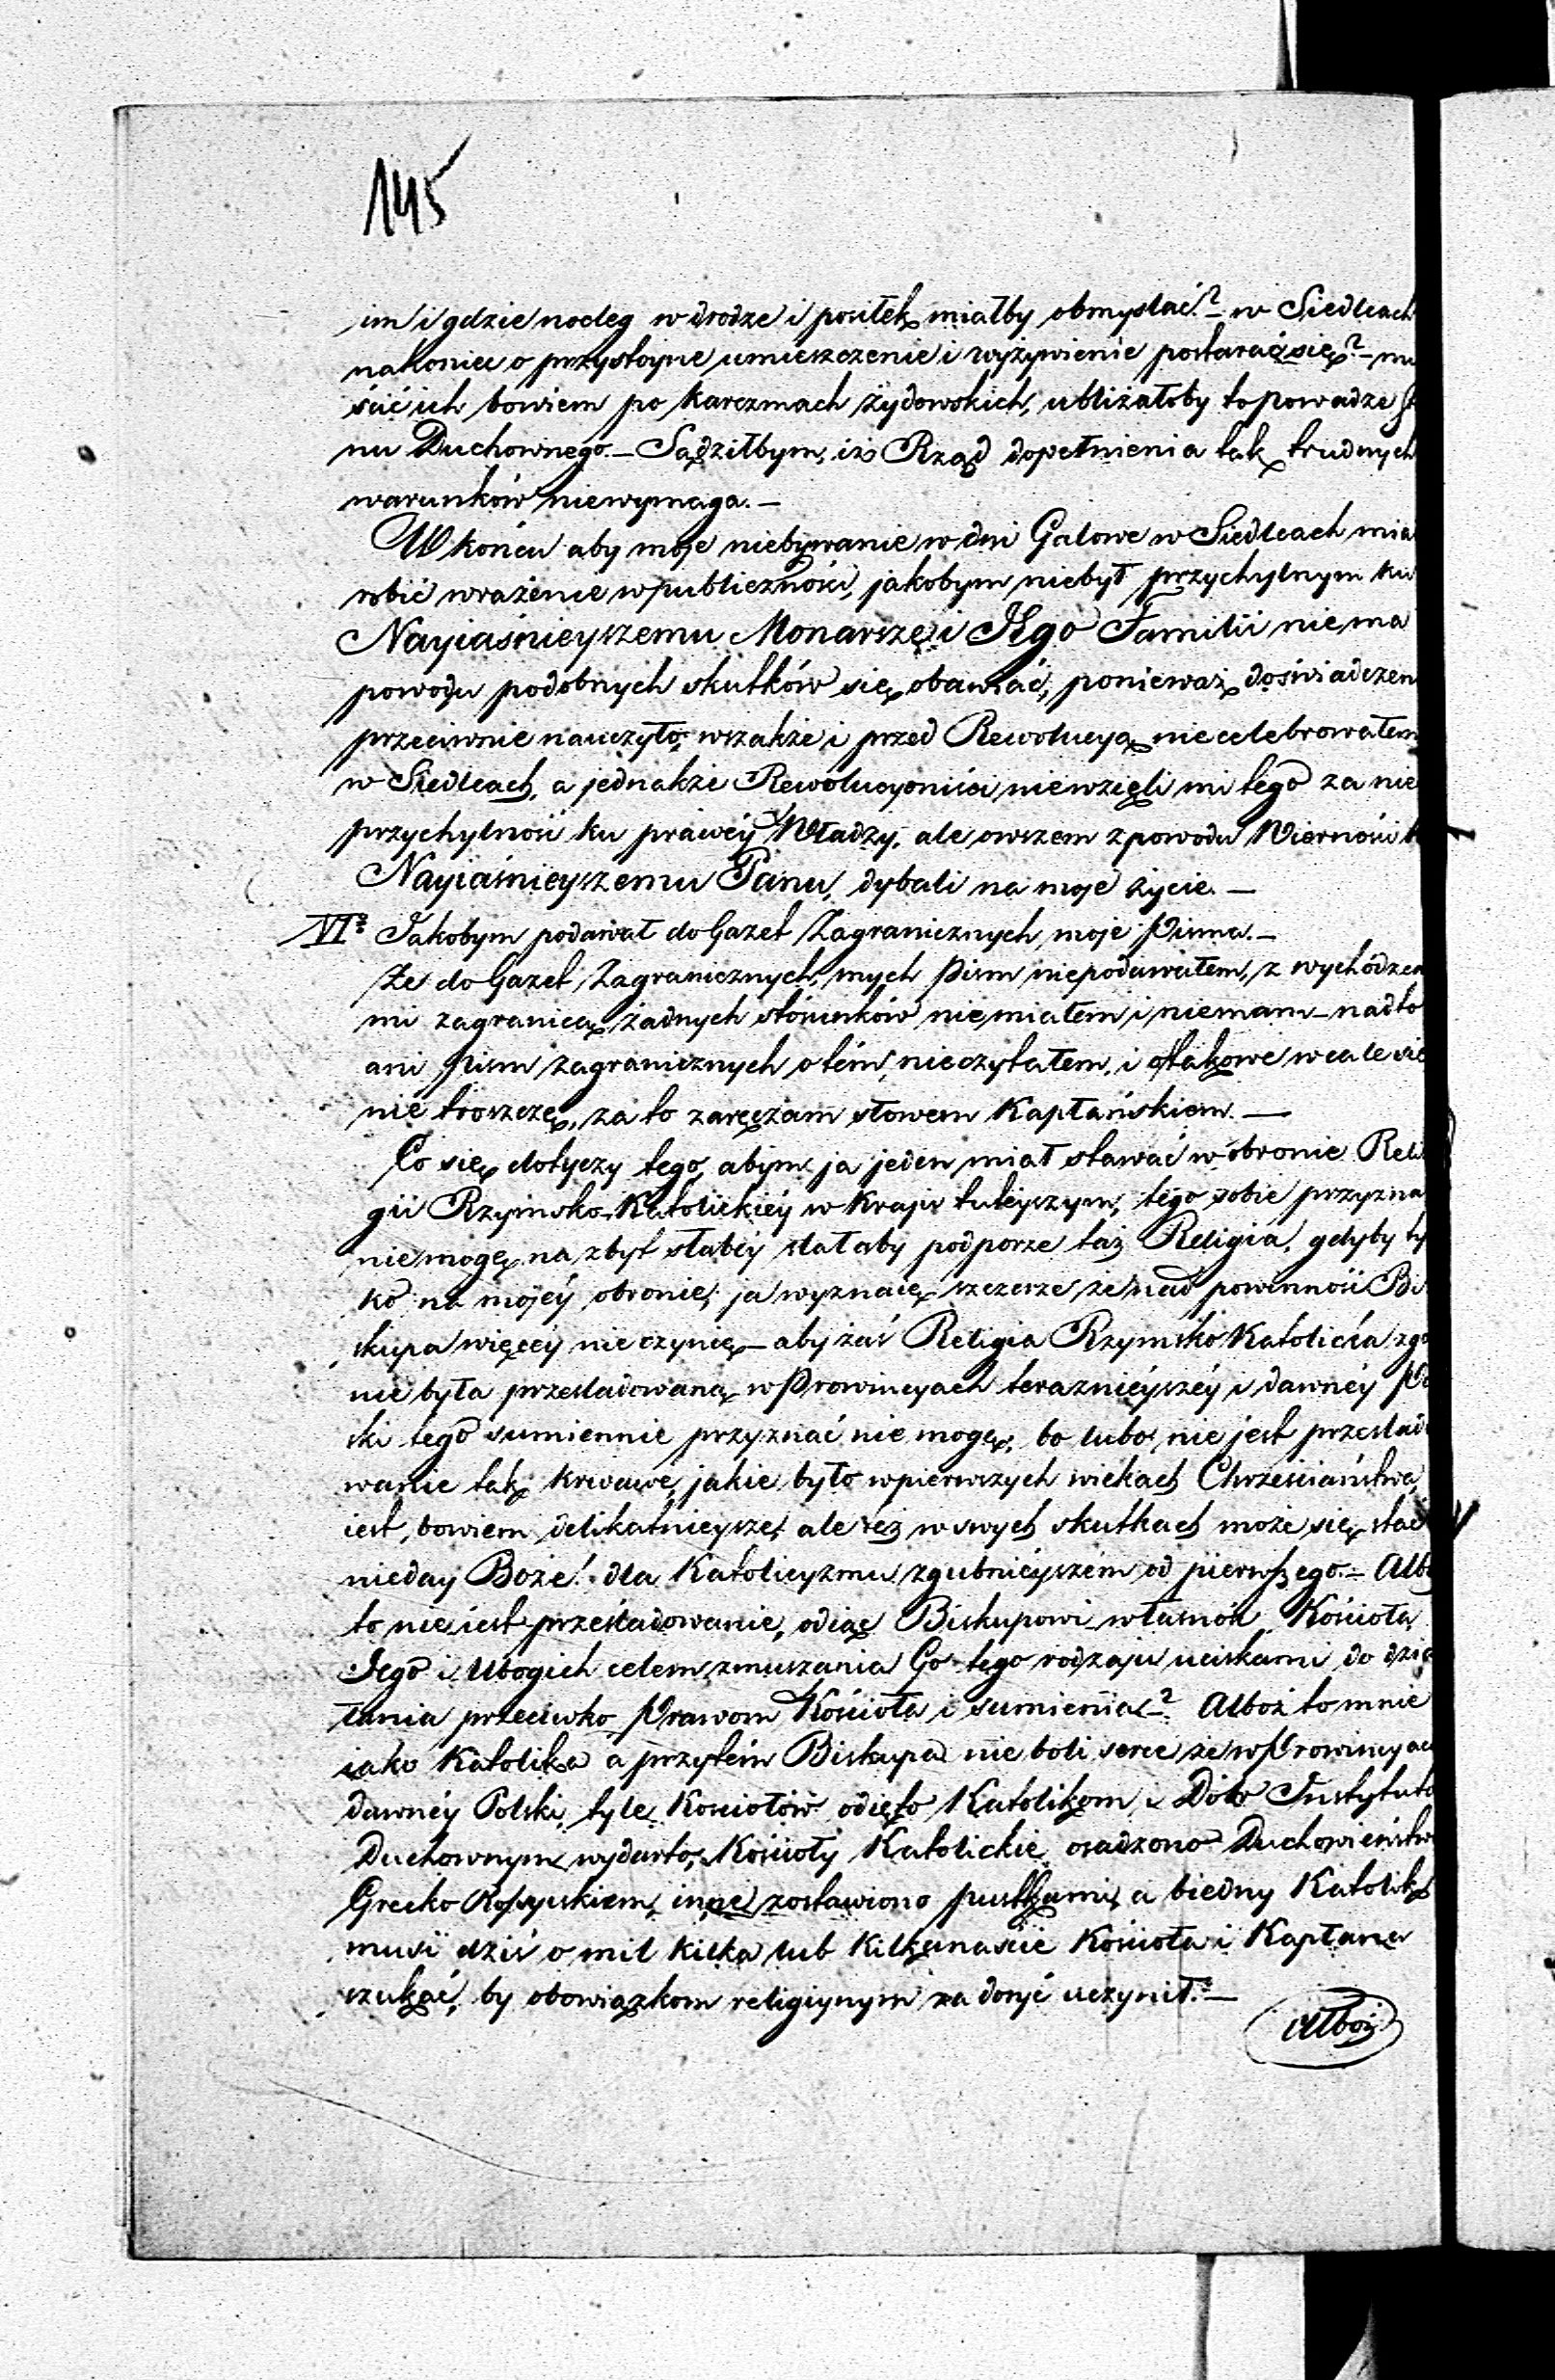 145
im i gdzie nocleg w drodze i posiłek miałby obmyślać? – w Siedlcach
nakoniec o przystoyne umieszczenie i wyżywienie postarać się? –
ścić ich bowiem po karczmach żydowskich, ubliżałoby to powadze
nu Duchownego. – Sądziłbym, iż Rząd dopełnienia tak trudnych
warunków niewymaga. –
W końcu aby moje niebywanie w dni Galowe w Siedlcach mia
robić wrażenie w publiczności, jakobym niebył przychylnym ku
Nayiaśnieyszemu Monarsze i Jego Familii niema
powodu podobnych skutków się obawiać, ponieważ doświadczen
przeciwnie nauczyło, wszakże i przed Rewolucyą niecelebrowałem
w Siedlcach, a jednakże Rewolucyoniści niewzięli mi tego za nie
przychylność ku prawéy Władzy, ale owszem z powodu Wierności
Nayiaśnieyszemu Panu, dybali na moje życie. –
VIº Jakobym podawał do Gazet Zagranicznych moje Pisma. –
Że do Gazet Zagranicznych, mych Pism niepodawałem, z wychodzca
mi zagranicą żadnych stósunków niemiałem i niemam – nadto
ani Pism zagranicznych o tém, nieczytałem, i o takowe wcale się
nie troszczę, za to zaręczam słowem Kapłańskiem. –
Co się dotyczy tego, abym ja jeden miał stawać w obronie Reli
gii Rzymsko-Katolickiéy w Kraju tuteyszym, tego sobie przyzna
niemogę, na zbyt słabéy stałaby podporze taż Religia, gdyby ty
ko na mojéy obronie, ja wyznaię szczerze że nad powinność Bi
skupa więcey nieczynię – aby zaś Religia Rzymsko Katolicka zgo
nie była prześladowaną w Prowincyach teraznieyszéy i dawnéy Po
ski tego sumiennie przyznać niemogę, bo lubo nie jest prześlado
wanie tak krwawe, jakie było w pierwszych wiekach Chrześciaństwa,
iest, bowiem delikatnieysze, ale też w swych skutkach może się stać
nieday Boże! dla Katolicyzmu zgubnieyszém od pierwszego. – Albo
to nie iest prześladowanie, odiąć Biskupowi własność Kościoła
Jego i Ubogich celem zmuszania Go tego rodzaju uciskami do dzia
łania przeciwko Prawom Kościoła i sumienia? Alboż to mnie
iako Katolika a przytém Biskupa nie boli serce że w Prowincyac
dawnéy Polski, tyle Kościołów odięto Katolikom, i Dóbr Instytuto
Duchownym wydarto, Kościoły Katolickie osadzono Duchowieństw
Grecko Rossyyskiem, inne zostawiono pustkami, a biedny Katolik
musi dziś o mil kilka lub kilkanaście Kościoła i Kapłana
szukać, by obowiązkom religiynym zadosyć uczynił. –
Alboż